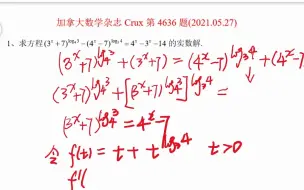 加拿大数学杂志 Crux 第 4636 题(2021.05.27)
1、求方程(3^x+7)^{log_4 3}-(4^x-7)^{log_3 4}=4^x-3^x-14 的实数解.
(3^x+7)^{log_4 3}+(3^x+7)=(4^x-7)^{log_3 4}+(4^x-7
(3^x+7)^{log_4 3}+[(3^x+7)^{log_4 3}]^{log_3 4}=
(3^x+7)^{log_4 3}=4^x-7
令 f(t)=t+t^{log_3 4} t>0
f'(